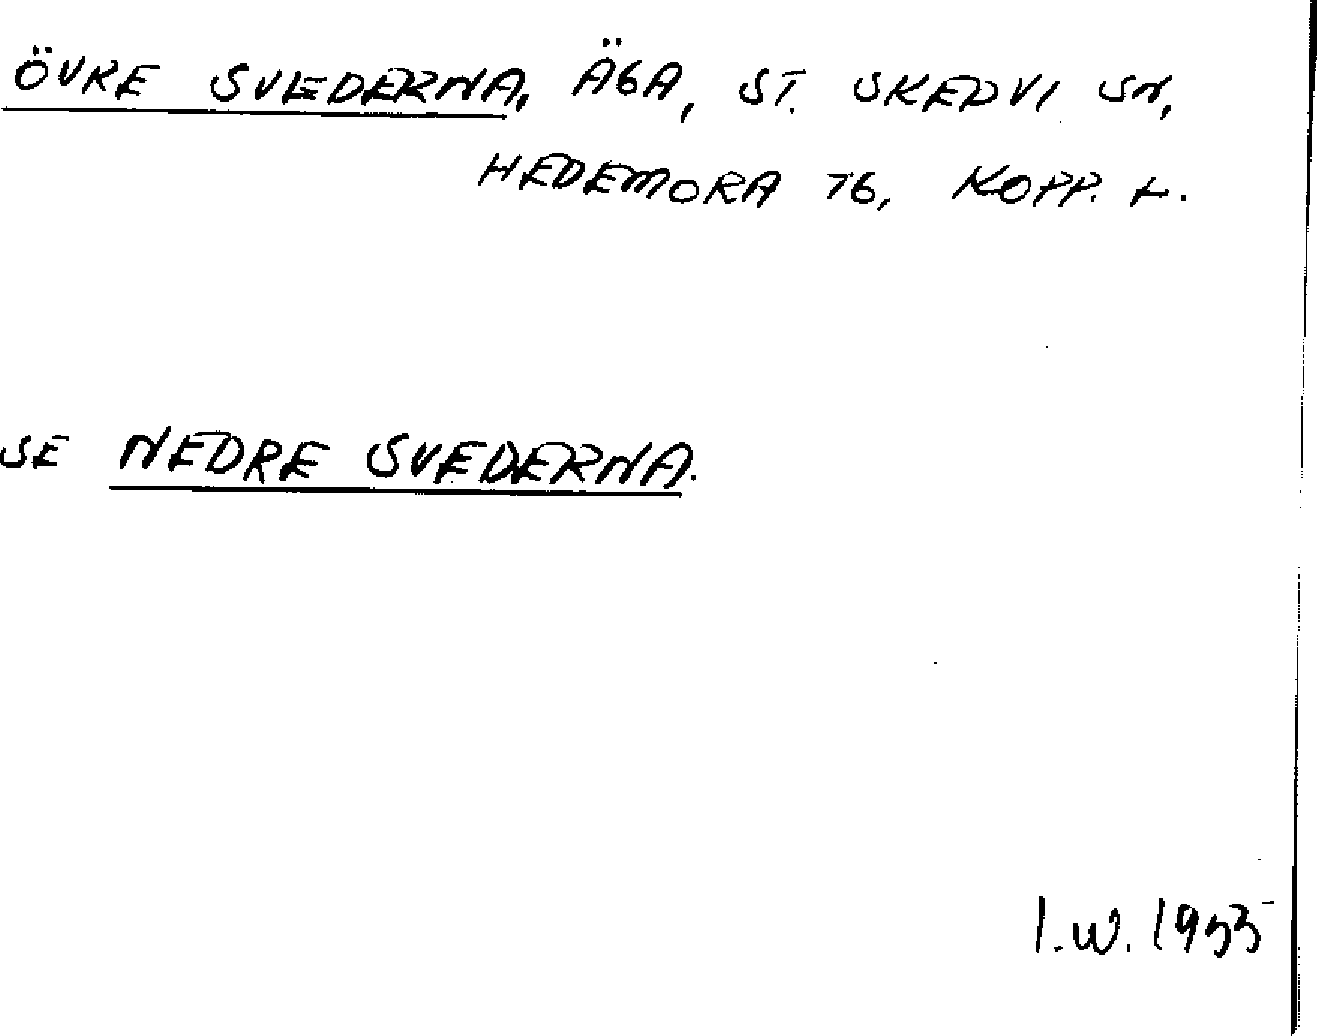 ÖVRE SVEDERNA, ÄGA, ST. SKEDVI SN,
HEDEMORA TG, KOPP. L.
SE NEDRE SVEDERNA.
I.W. 1953